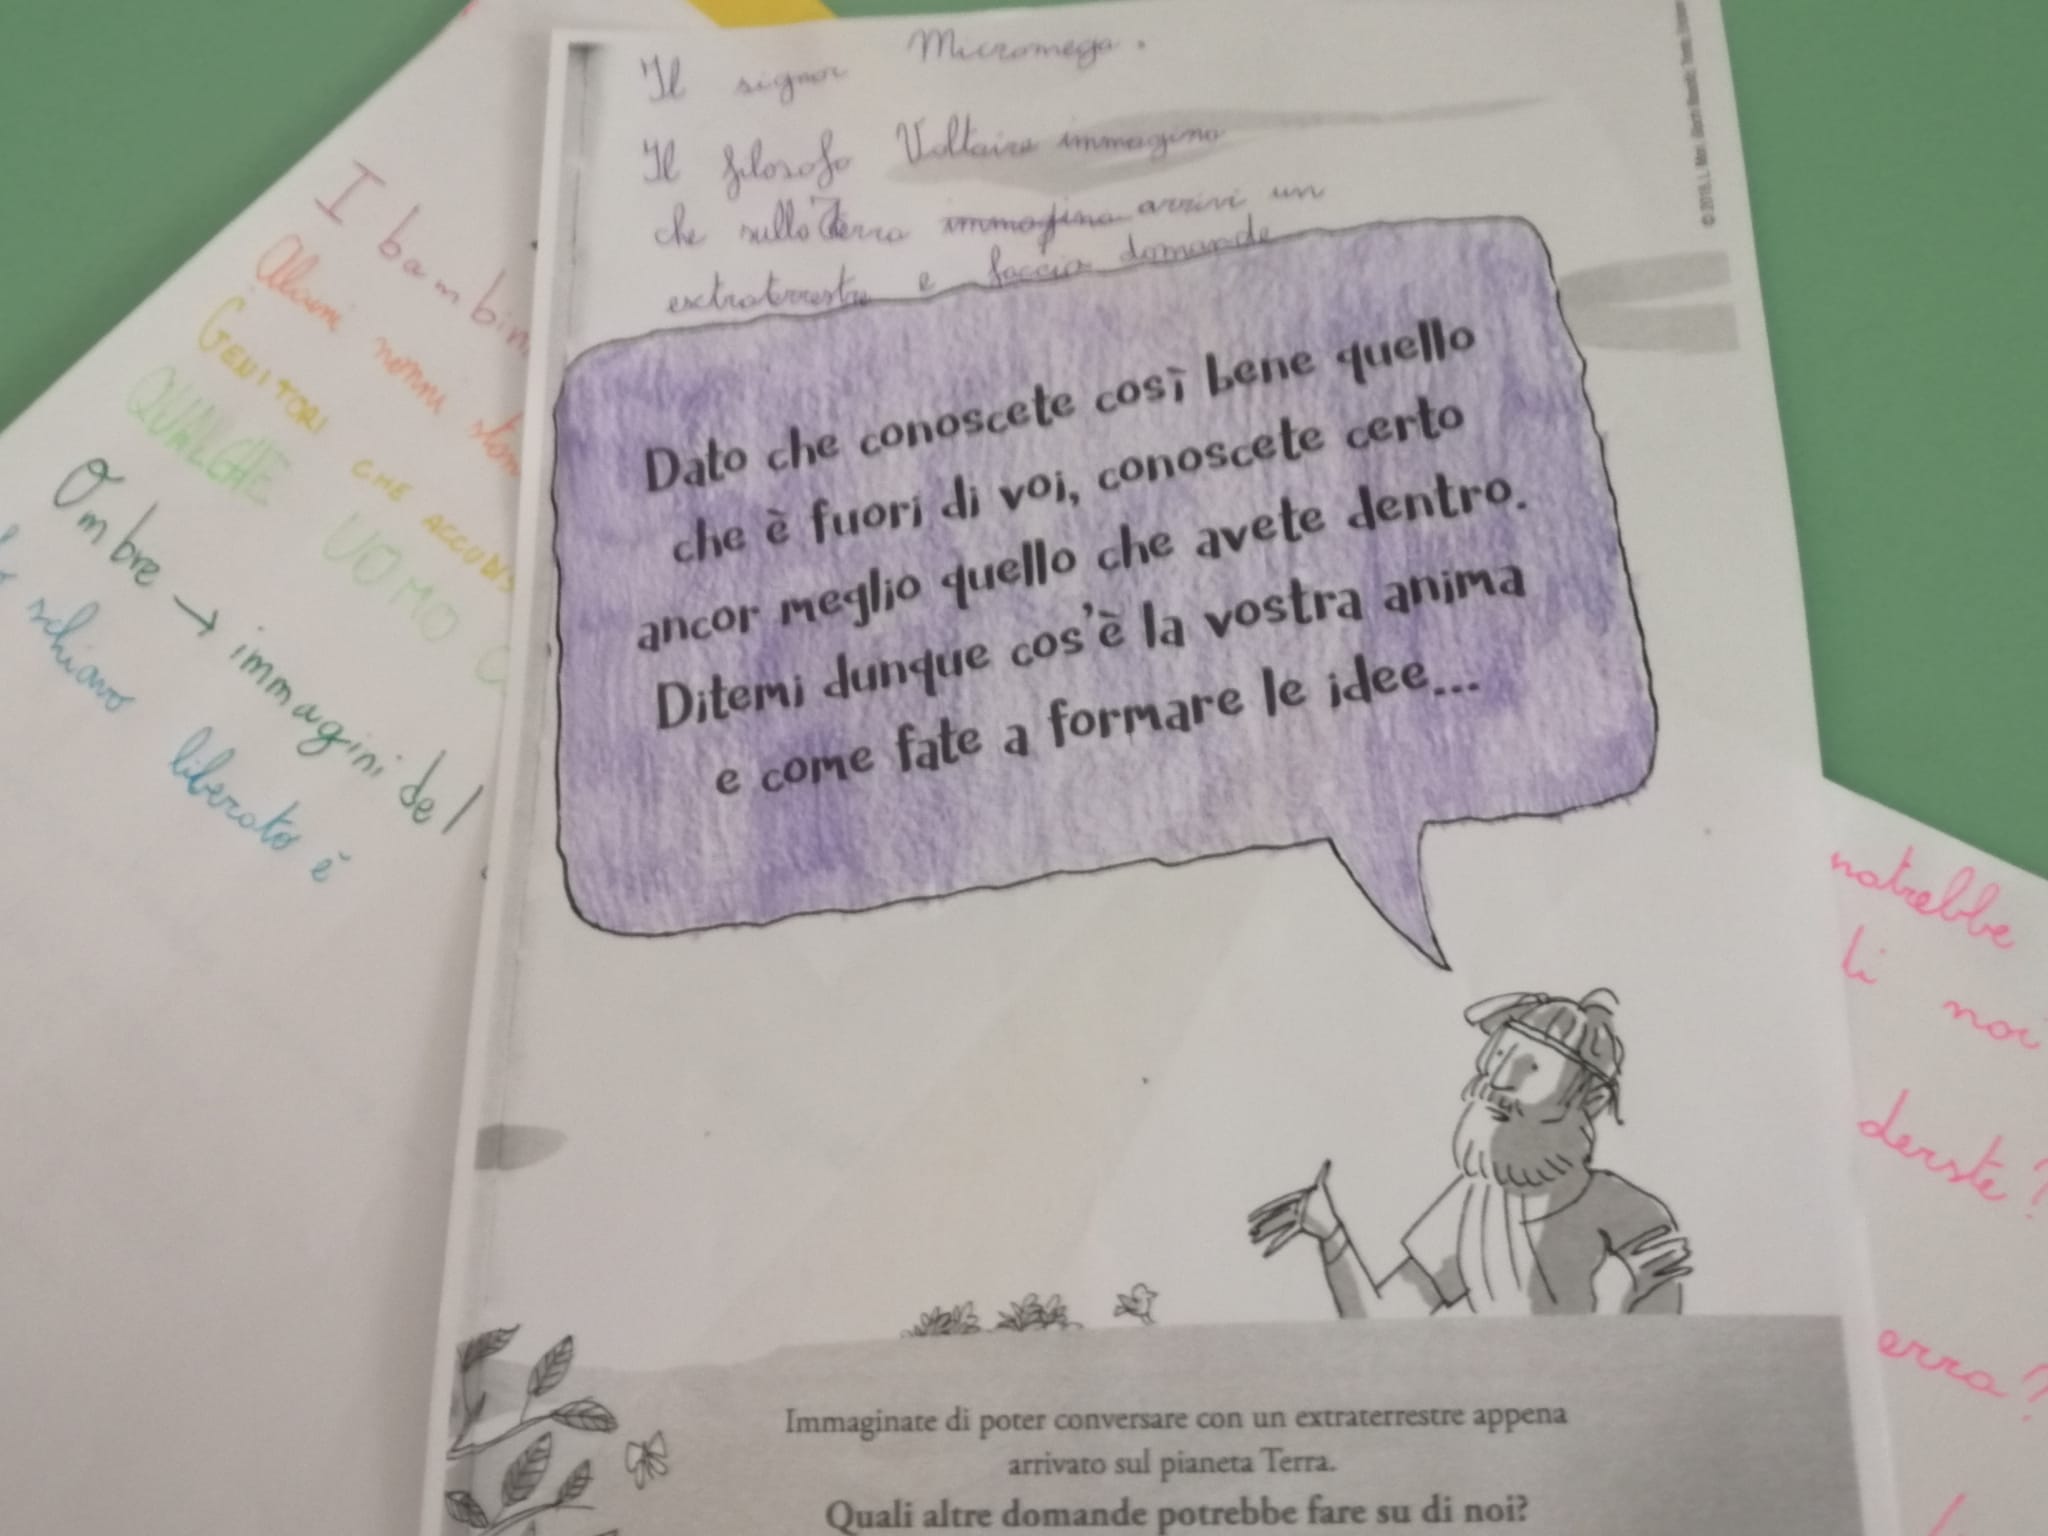 Il signor Micromega.
Il filosofo Voltaire immagino
che sulla Terra immagina arrivi un
exctraterrestre e faccia domande
Dato che conoscete così bene quello
che è fuori di voi, conoscete certo
ancor meglio quello che avete dentro.
Ditemi dunque cos'è la vostra anima
e come fate a formare le idee...
Immaginate di poter conversare con un extraterrestre appena
arrivato sul pianeta Terra.
Quali altre domande potrebbe fare su di noi?
I bambin
Alcuni nonni
GENITORI CHE ACCUDIS
QUALCHE UOMO
Ombre → immagini del
schiavo liberato è
potrebbe
di noi
derste?
erra?